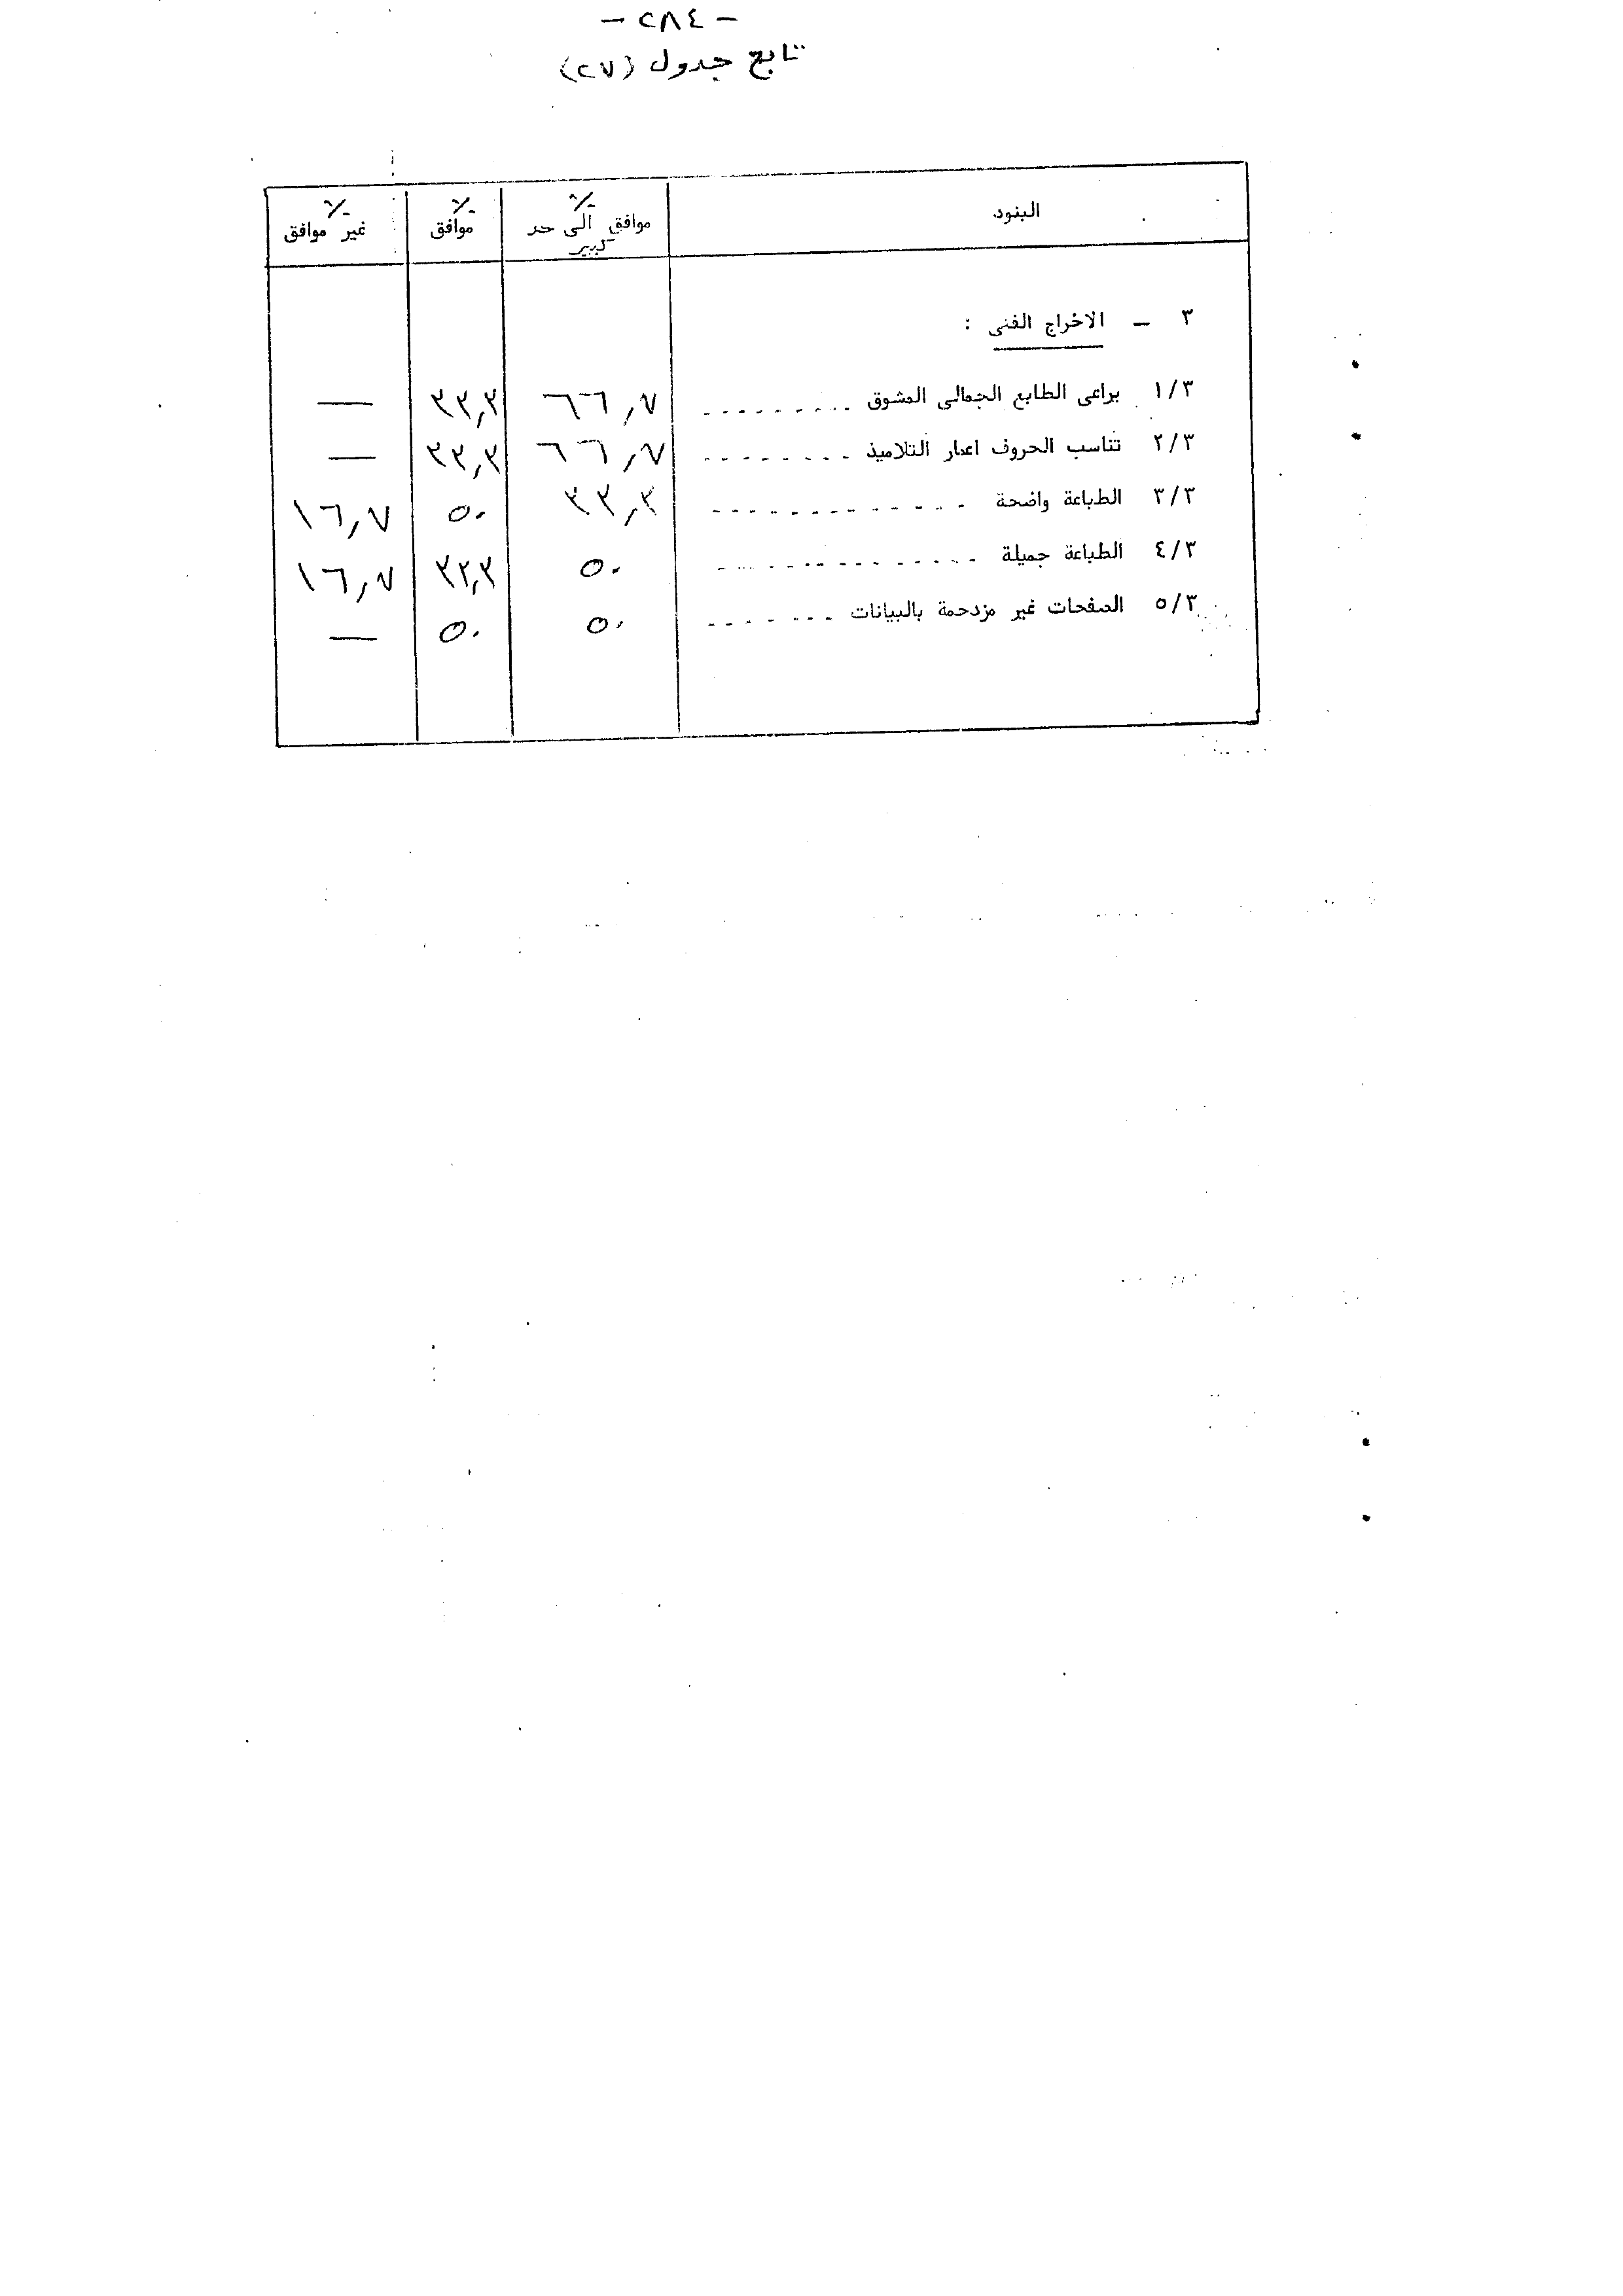 - ٢٨٤ -
تابع جدول (٢٧)
البنود	٪ موافق الى حد كبير	٪ موافق	٪ غير موافق
٣ - الاخراج الفنى :
١/٣ يراعى الطابع الجمالى المشوق ......... ٦٦,٧ ٣٣,٣ —
٢/٣ تناسب الحروف اعمار التلاميذ ........ ٦٦,٧ ٣٣,٣ —
٣/٣ الطباعة واضحة ............. ٣٣,٣ ٥٠ ١٦,٧
٤/٣ الطباعة جميلة ............. ٥٠ ٣٣,٣ ١٦,٧
٥/٣ الصفحات غير مزدحمة بالبيانات ....... ٥٠ ٥٠ —